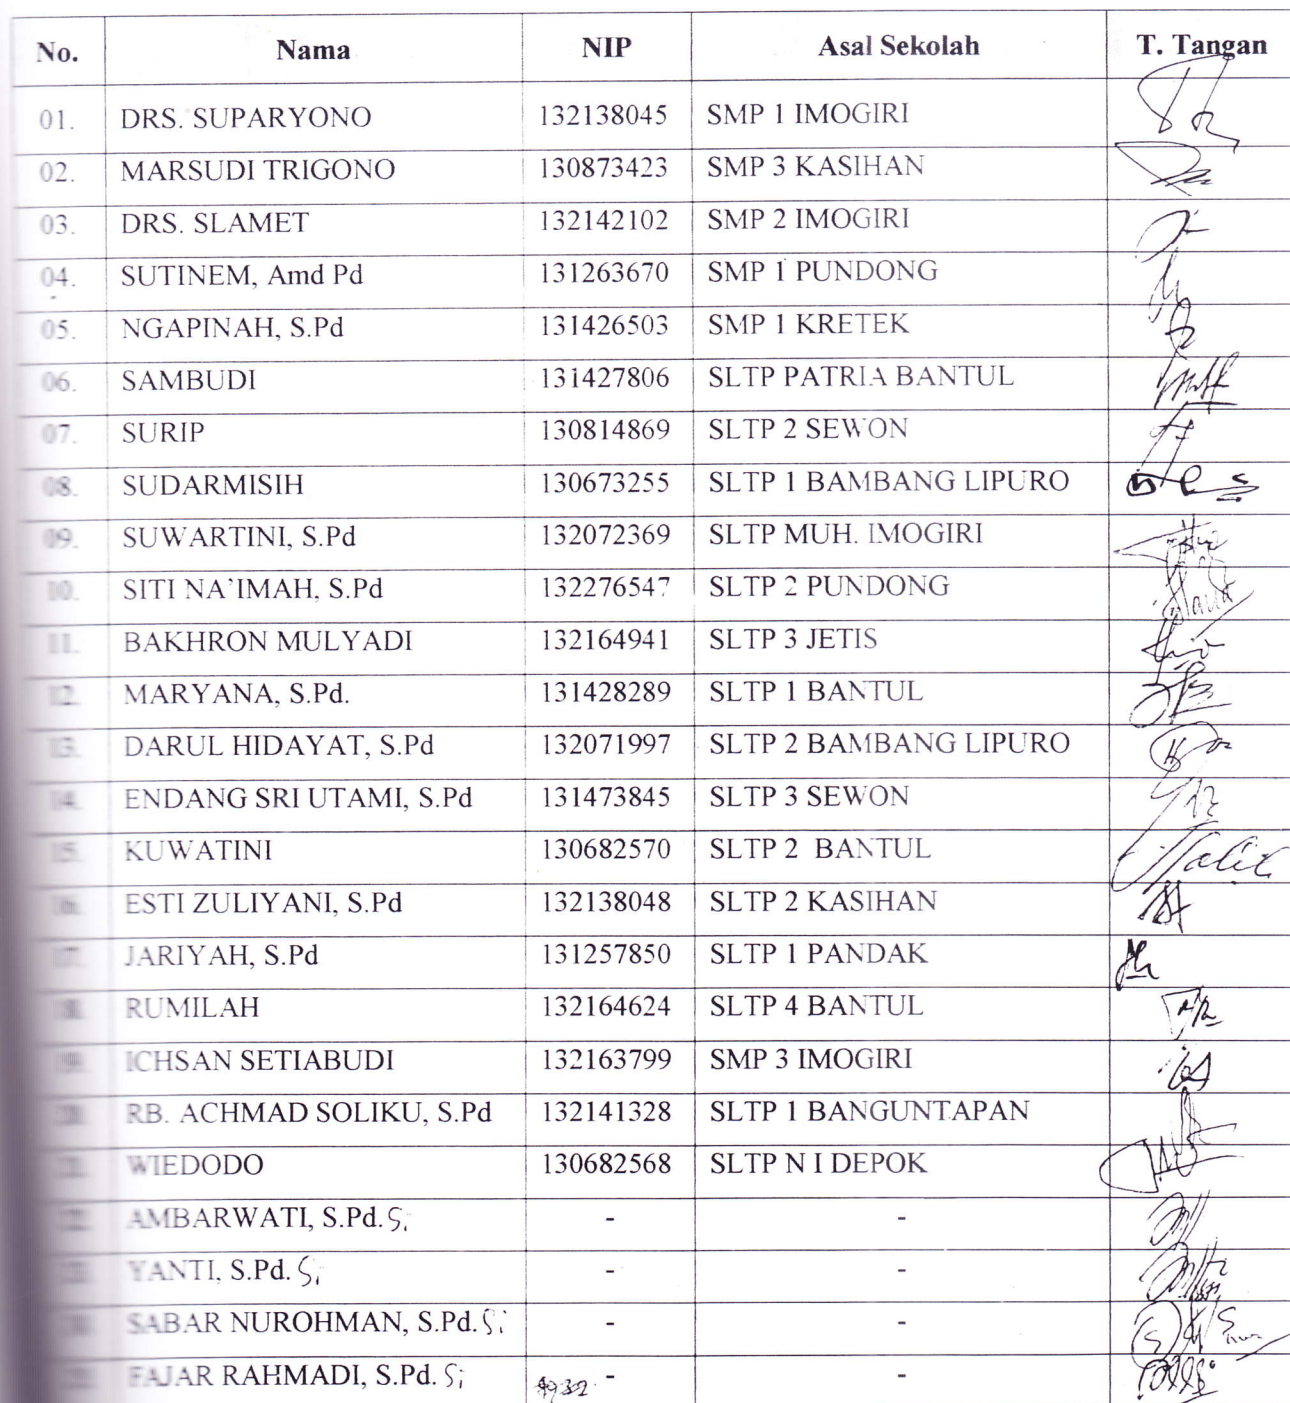 No. Nama NIP Asal Sekolah T. Tangan
01. DRS. SUPARYONO 132138045 SMP 1 IMOGIRI
02. MARSUDI TRIGONO 130873423 SMP 3 KASIHAN
03. DRS. SLAMET 132142102 SMP 2 IMOGIRI
04. SUTINEM, Amd Pd 131263670 SMP 1 PUNDONG
05. NGAPINAH, S.Pd 131426503 SMP 1 KRETEK
06. SAMBUDI 131427806 SLTP PATRIA BANTUL
07. SURIP 130814869 SLTP 2 SEWON
08. SUDARMISIH 130673255 SLTP 1 BAMBANG LIPURO
09. SUWARTINI, S.Pd 132072369 SLTP MUH. IMOGIRI
10. SITI NA'IMAH, S.Pd 132276547 SLTP 2 PUNDONG
11. BAKHRON MULYADI 132164941 SLTP 3 JETIS
12. MARYANA, S.Pd. 131428289 SLTP 1 BANTUL
13. DARUL HIDAYAT, S.Pd 132071997 SLTP 2 BAMBANG LIPURO
14. ENDANG SRI UTAMI, S.Pd 131473845 SLTP 3 SEWON
15. KUWATINI 130682570 SLTP 2 BANTUL
16. ESTI ZULIYANI, S.Pd 132138048 SLTP 2 KASIHAN
17. JARIYAH, S.Pd 131257850 SLTP 1 PANDAK
18. RUMILAH 132164624 SLTP 4 BANTUL
19. ICHSAN SETIABUDI 132163799 SMP 3 IMOGIRI
20. RB. ACHMAD SOLIKU, S.Pd 132141328 SLTP 1 BANGUNTAPAN
21. WIEDODO 130682568 SLTP N I DEPOK
AMBARWATI, S.Pd. Si - -
YANTI, S.Pd. Si - -
SABAR NUROHMAN, S.Pd. Si - -
FAJAR RAHMADI, S.Pd. Si - -